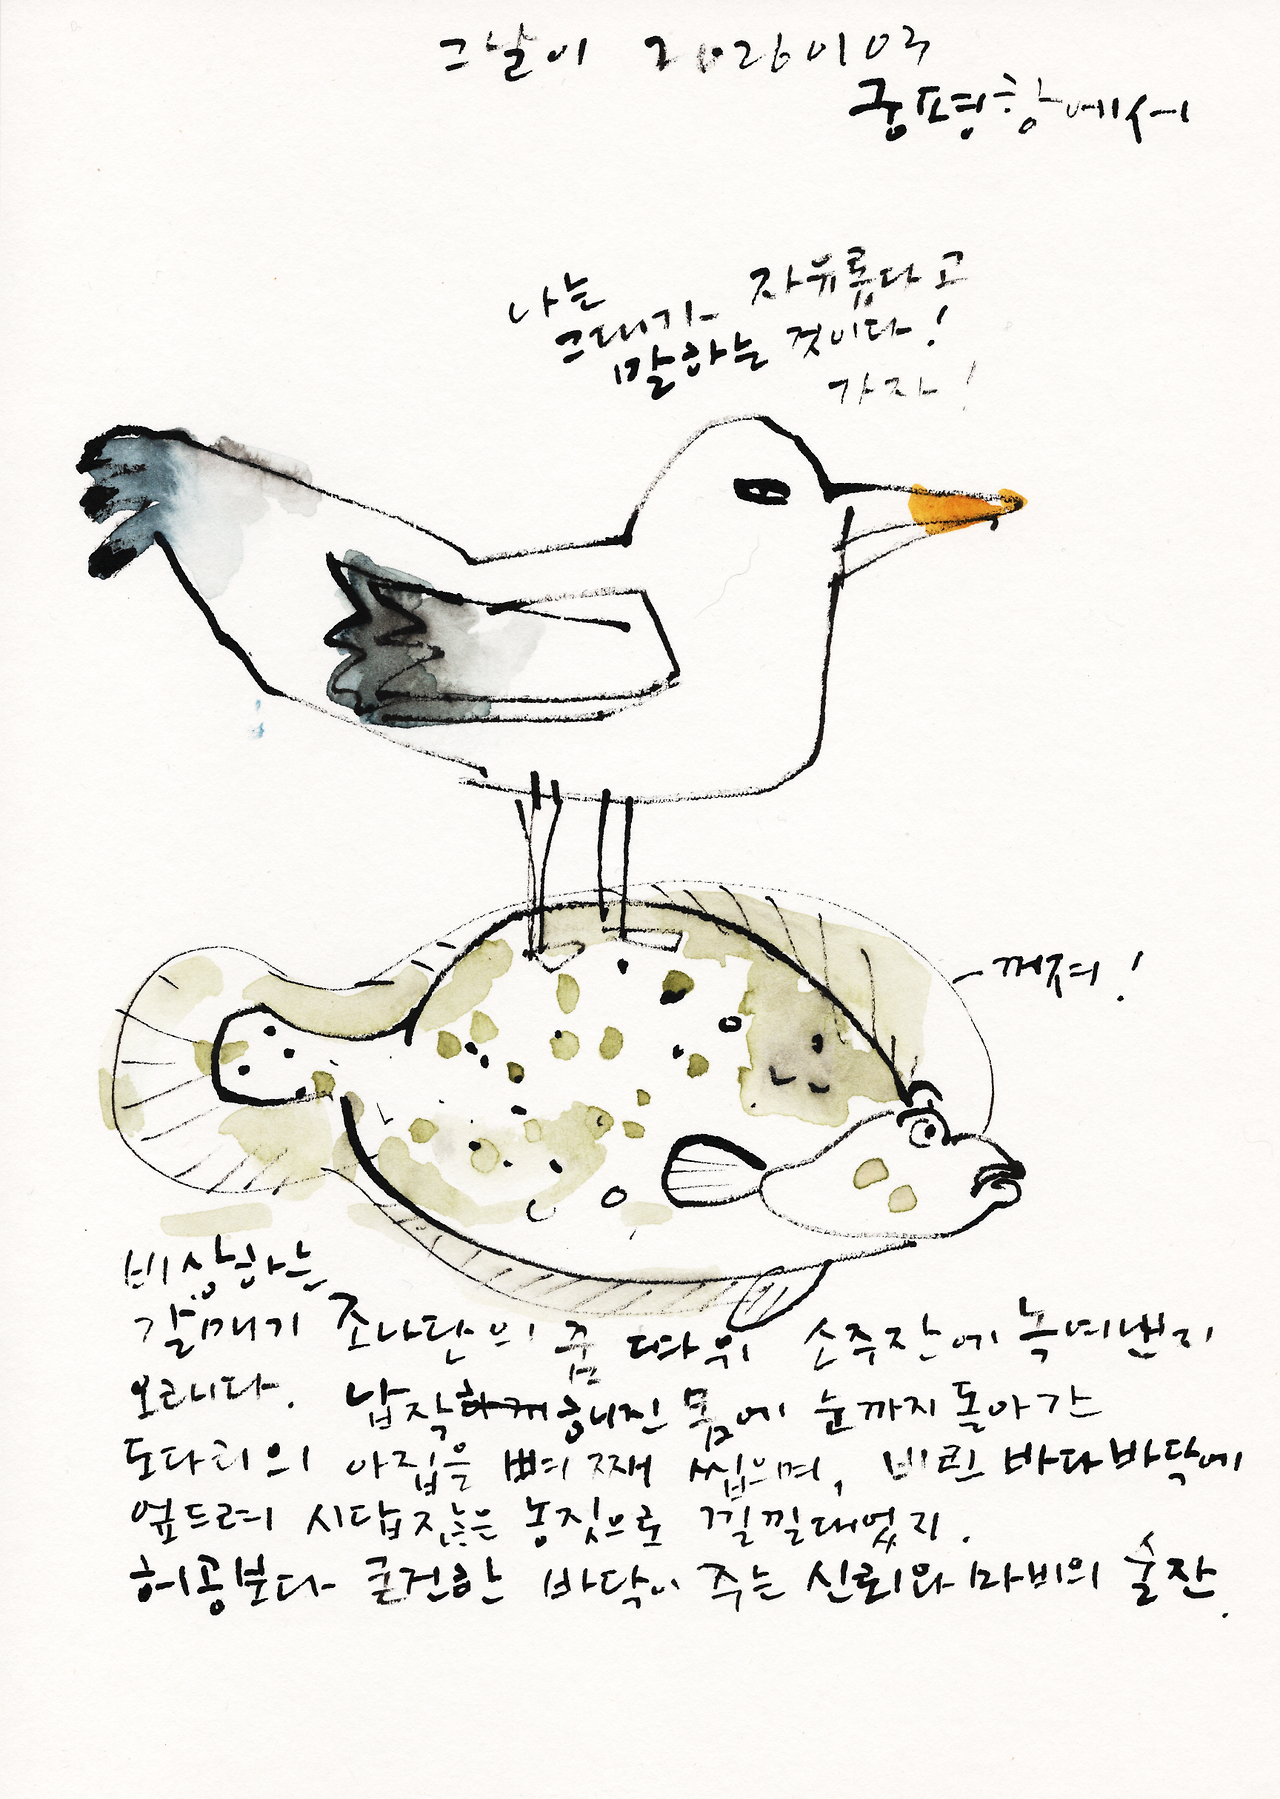 그날이 20260103
궁평항에서
나는
그대가 자유롭다고
말하는 것이다!
가자!
꺼져!
비상하는
갈매기 조나단의 꿈 따위 소주잔에 녹여낸지
오래다. 납작하게해진 몸에 눈까지 돌아간
도다리의 아집을 뼈째 씹으며, 비린 바다바닥에
엎드려 시답잖은 농짓으로 낄낄대었지.
허공보다 굳건한 바닥이 주는 신뢰와 마비의 술잔.